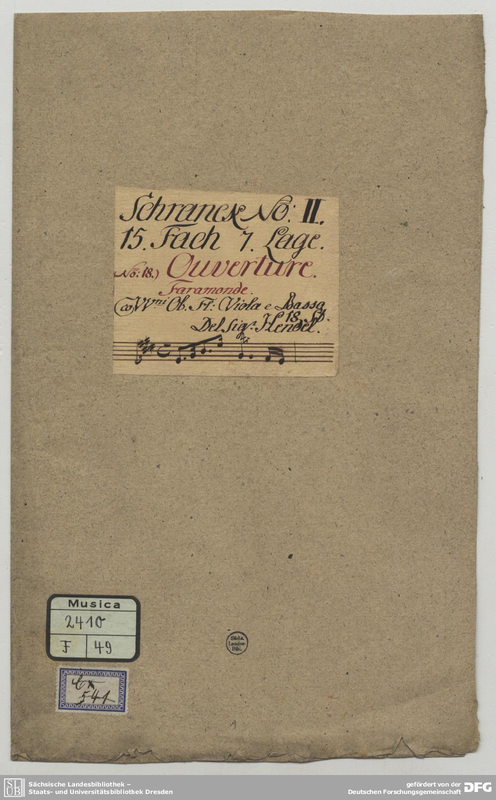 Schranck No: II.
15. Fach 7. Lage.
No: 18.) Ouverture.
Faramonde.
Co VVni Ob. Fl. Viola e Basso
18. St.
Del Sigr. Hendel.
Musica
2410
F 49
541
Sächs.
Landes-
Bibl.
1
SLUB
Sächsische Landesbibliothek –
Staats- und Universitätsbibliothek Dresden
gefördert von der
Deutschen Forschungsgemeinschaft DFG